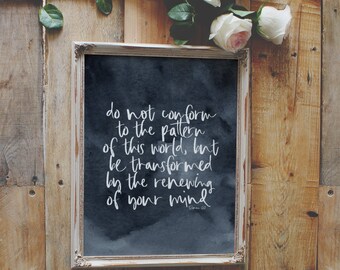 do not conform
to the pattern
of this world, but
be transformed
by the renewing
of your mind